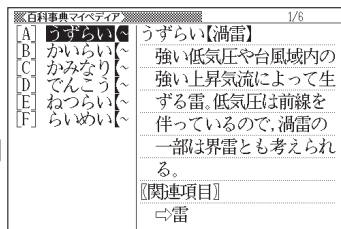 百科事典マイペディア 1/6
[A] うずらい【~
[B] かいらい【~
[C] かみなり【~
[D] でんこう【~
[E] ねつらい【~
[F] らいめい【~
うずらい【渦雷】
強い低気圧や台風域内の
強い上昇気流によって生
ずる雷。低気圧は前線を
伴っているので,渦雷の
一部は界雷とも考えられ
る。
〖関連項目〗
⇨雷